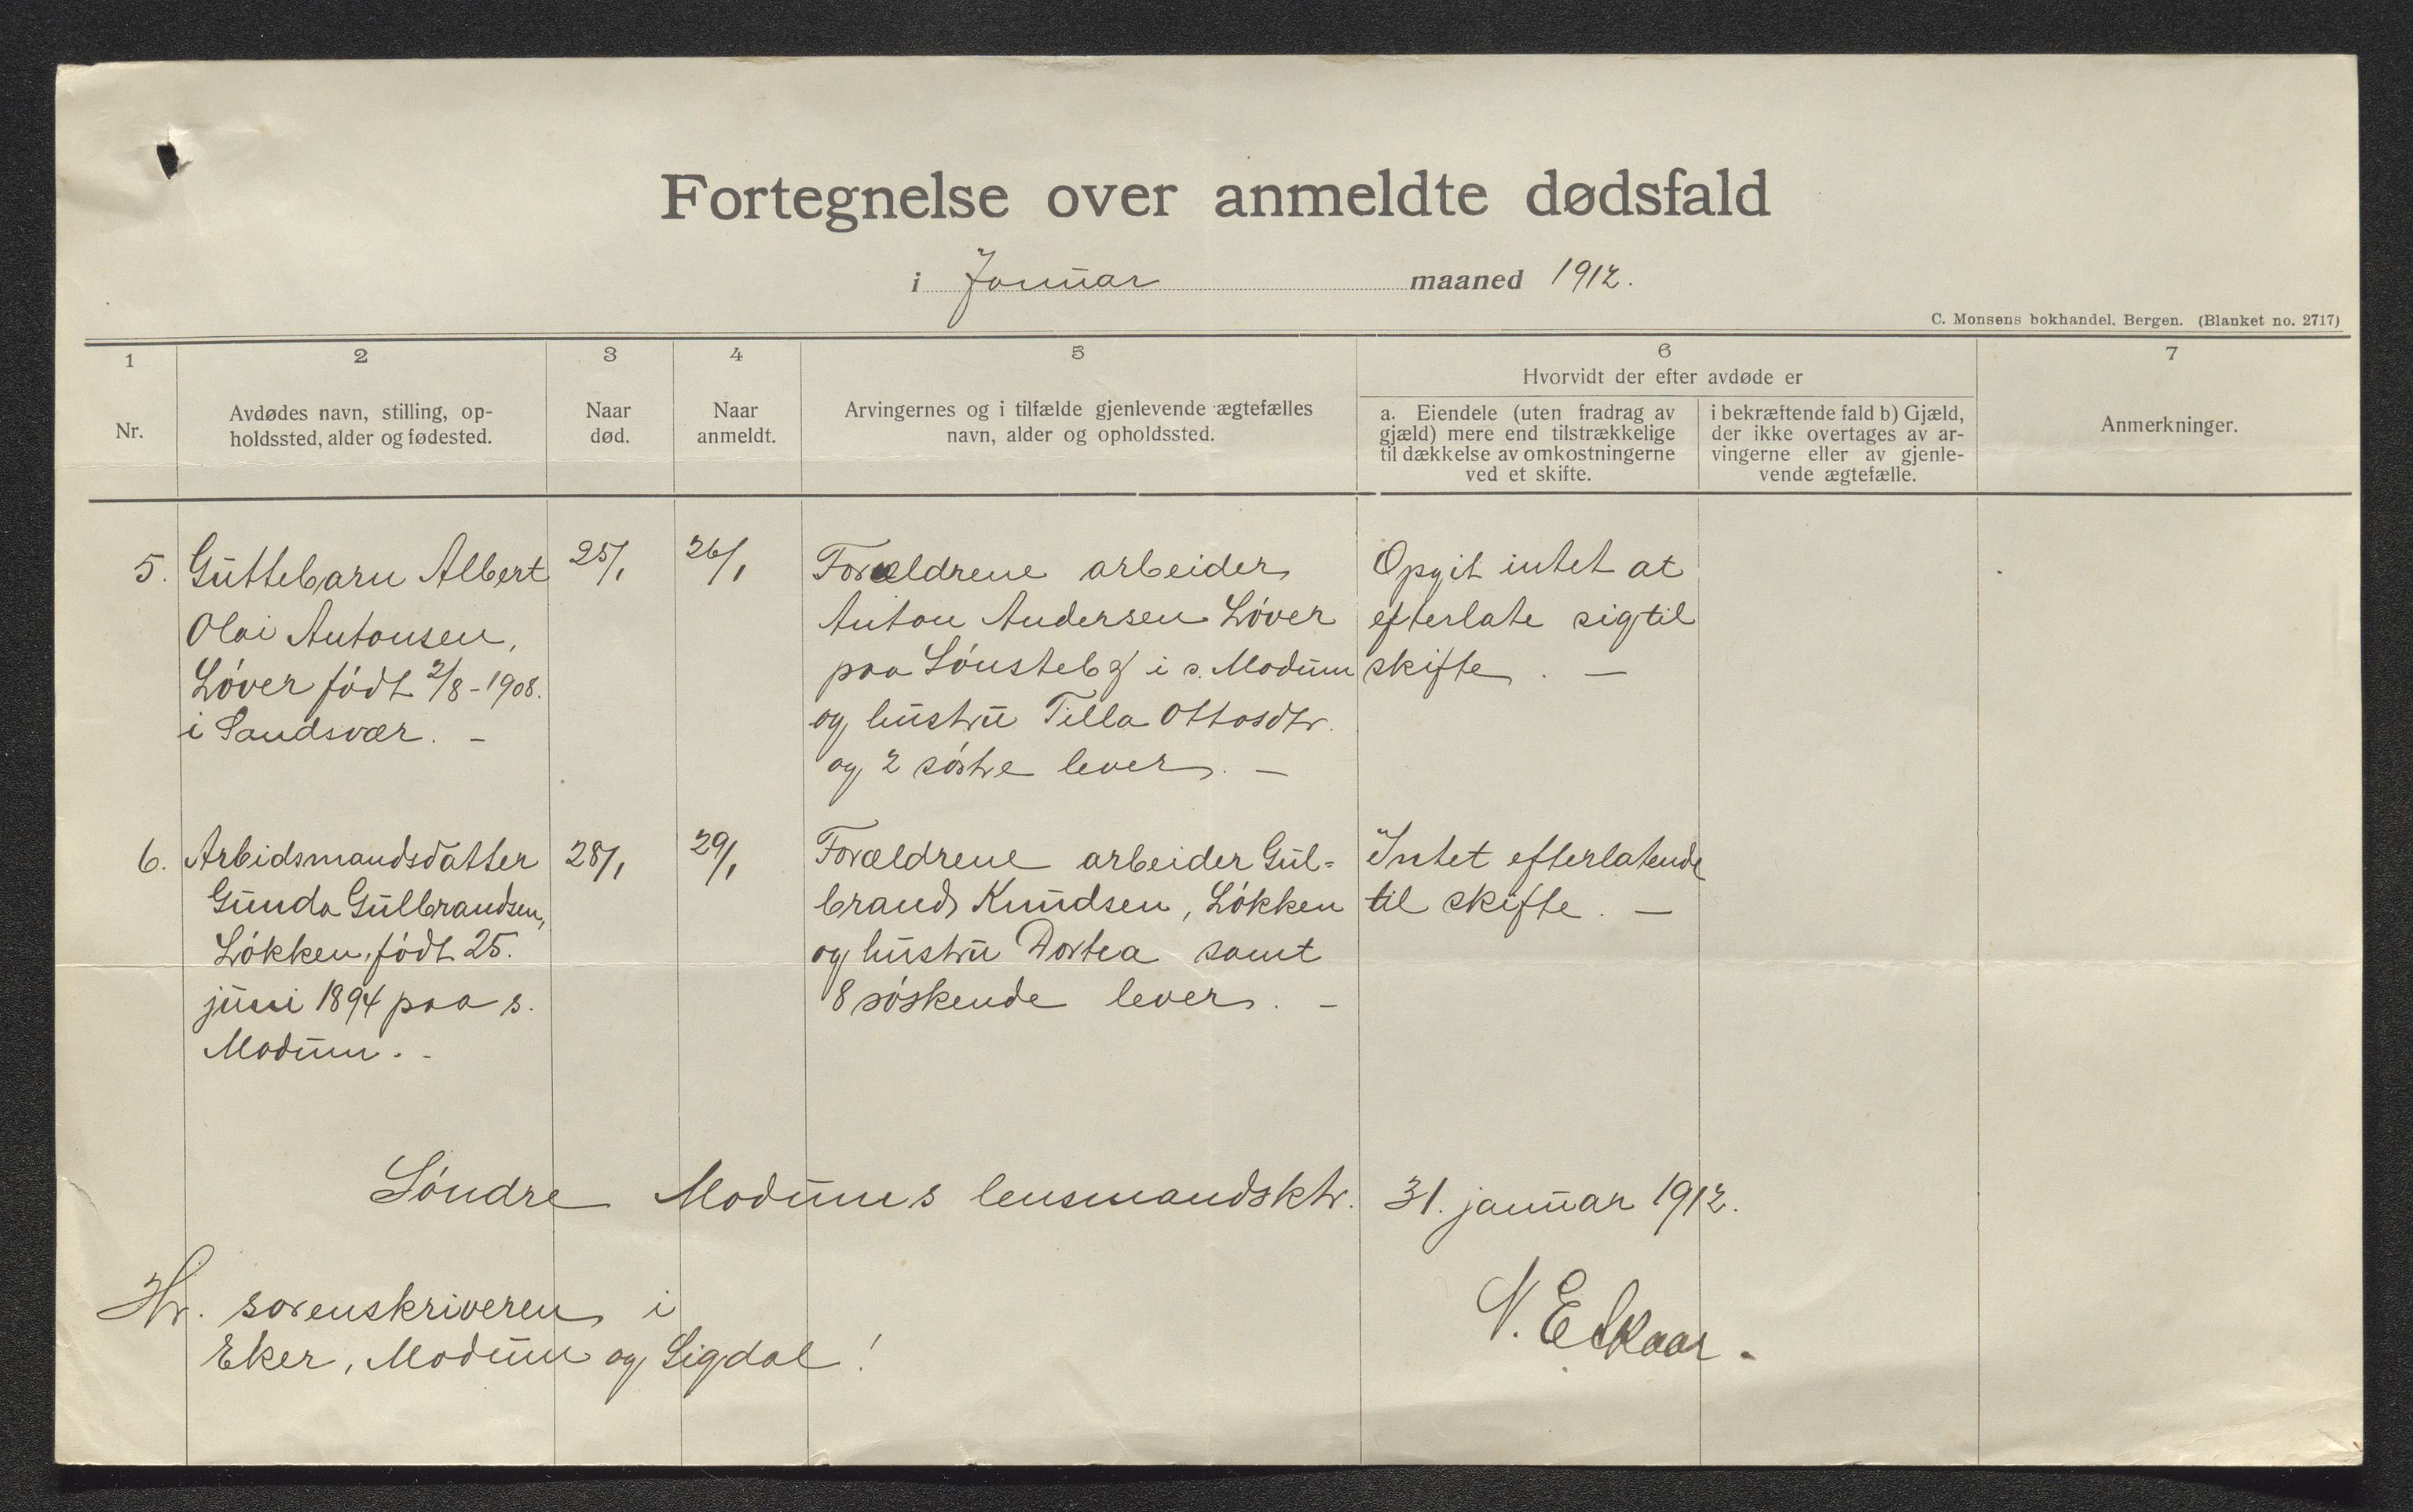 Fortegnelse over anmeldte dødsfald
i Januar maaned 1912.
C. Monsens bokhandel, Bergen. (Blanket no. 2717)
1 2 3 4 5 6 7
Hvorvidt der efter avdøde er
Nr.
Avdødes navn, stilling, op-
holdssted, alder og fødested.
Naar
død.
Naar
anmeldt.
Arvingernes og i tilfælde gjenlevende ægtefælles
navn, alder og opholdssted.
a. Eiendele (uten fradrag av
gjæld) mere end tilstrækkelige
til dækkelse av omkostningerne
ved et skifte.
i bekræftende fald b) Gjæld,
der ikke overtages av ar-
vingerne eller av gjenle-
vende ægtefælle.
Anmerkninger.
5.
Guttebarn Albert
Olai Antonsen,
Løver født 2/8-1908.
i Sandsvær. -
25/1
26/1
Forældrene arbeider
Anton Andersen Løver
paa i s. Modum
og hustru Tilla Ottosdtr.
og 2 søstre lever. -
Opgit intet at
efterlate sig til
skifte. -
6.
Arbidsmandsdatter
Gunda Gulbrandsen,
Løkken, født 25.
juni 1894 paa s.
Modum. -
28/1
29/1
Forældrene arbeider Gul-
brand Knudsen, Løkken
og hustru Dortea samt
8 søskende lever. -
Intet efterlatende
til skifte. -
Søndre Modums lensmandsktr. 31. januar 1912.
N. E. Skaar.
Hr. sorenskriveren i
Eker, Modum og Sigdal!